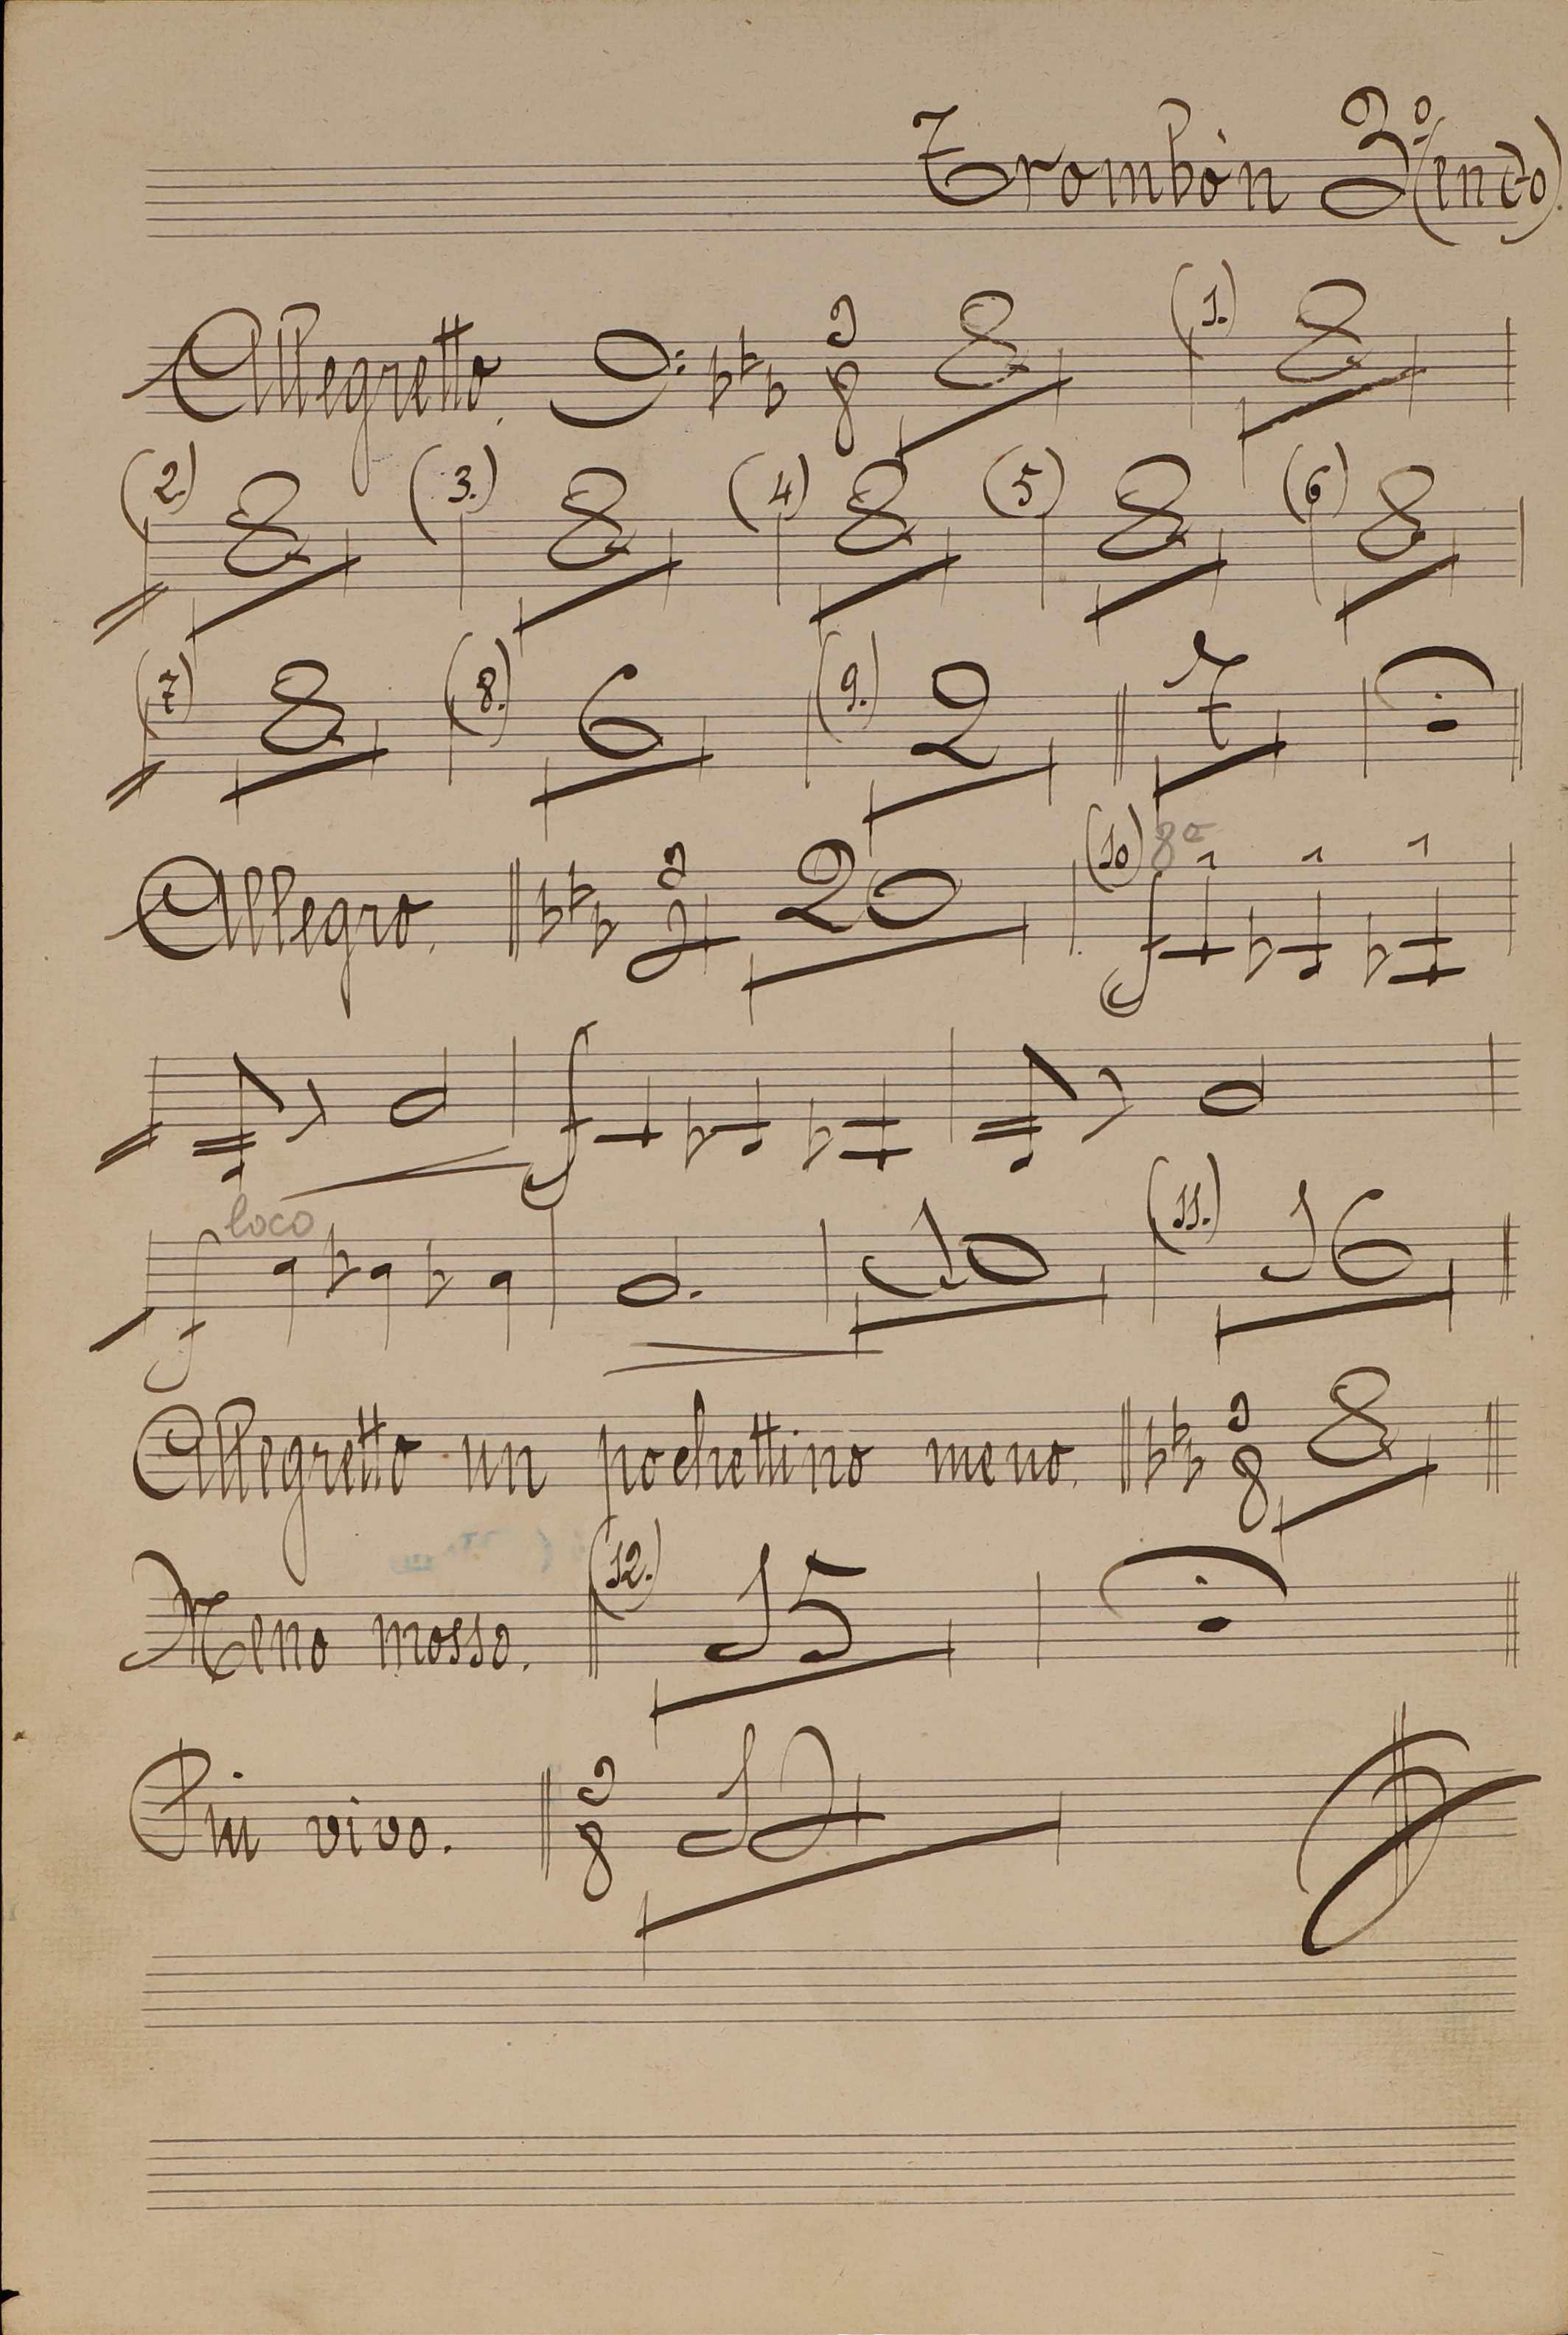 Trombón 2º (en do).
Allegretto. 3 8 8 (1.) 8
(2.) 8 (3.) 8 (4) 8 (5) 8 (6) 8
(7) 8 (8.) 6 (9.) 2 7
Allegro. 3 4 20 (10) 8ª f
f
f loco 10 (11.) 16
Allegretto un pochettino meno. 3 8 8
Meno mosso. (12.) 15
Piu vivo. 3 8 12